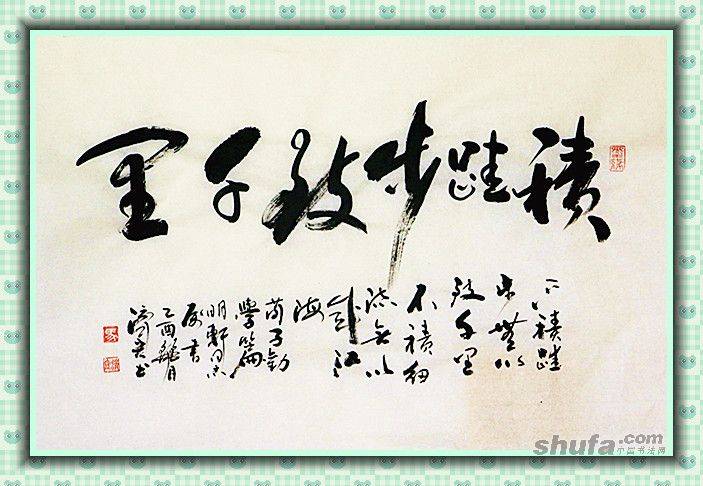 積跬步致千里
不積跬
步無以
致千里
不積細
流無以
成江
海
荀子勸
學篇
明軒同志
属書
乙酉
書
shufa.com
中国书法网